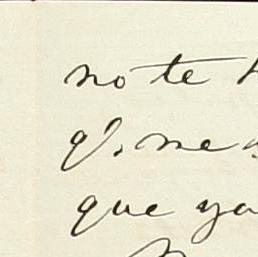 no te
q.e me
que yo